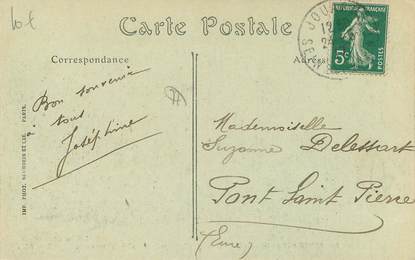 10 f
Carte Postale
Correspondance
Bon souvenir
à
tous
Joséphine
IMP. PHOT. ET CIE. PARIS.
REPUBLIQUE FRANÇAISE
5c
POSTES
Mademoiselle
Suzanne Delessart
Pont Saint Pierre
(Eure)